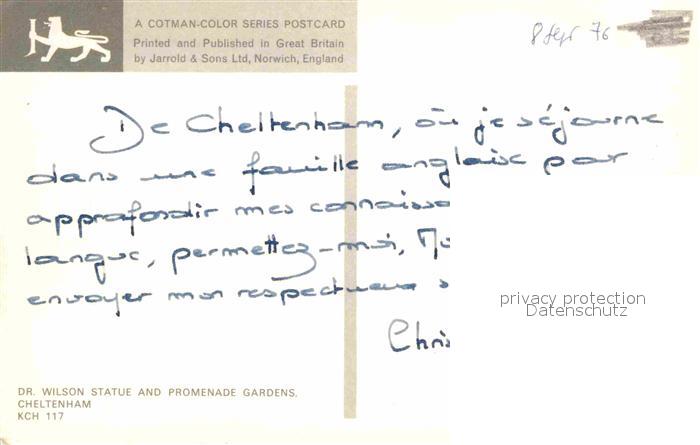 A COTMAN-COLOR SERIES POSTCARD
Printed and Published in Great Britain
by Jarrold & Sons Ltd, Norwich, England
8 Sept 76
De Cheltenham, où je séjourne
dans une famille anglaise pour
approfondir mes connaissa
langue, permettez-moi,
envoyer mon respectueux s
Chris
privacy protection
Datenschutz
DR. WILSON STATUE AND PROMENADE GARDENS,
CHELTENHAM
KCH 117